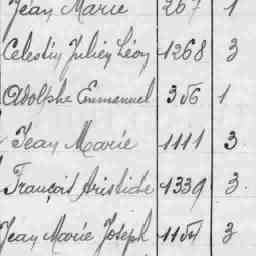 Jean Marie 267 1
Celestin Julien Léon 1268 3
Adolphe Emmanuel 356 1
Jean Marie 1111 3
François Aristide 1339 3
Jean Marie Joseph 1154 3